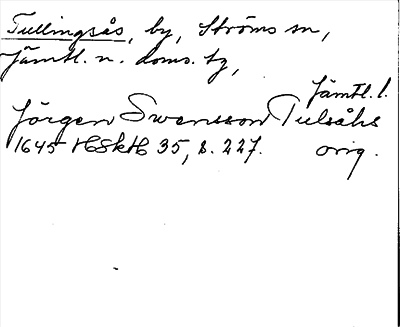 Tullingsås, by, Ströms sn,
Jämtl. n. doms. tg,
Jämtl. l.
Jörgen Swensson Tulsåhs
1645 HSkH 35, s. 227. orig.